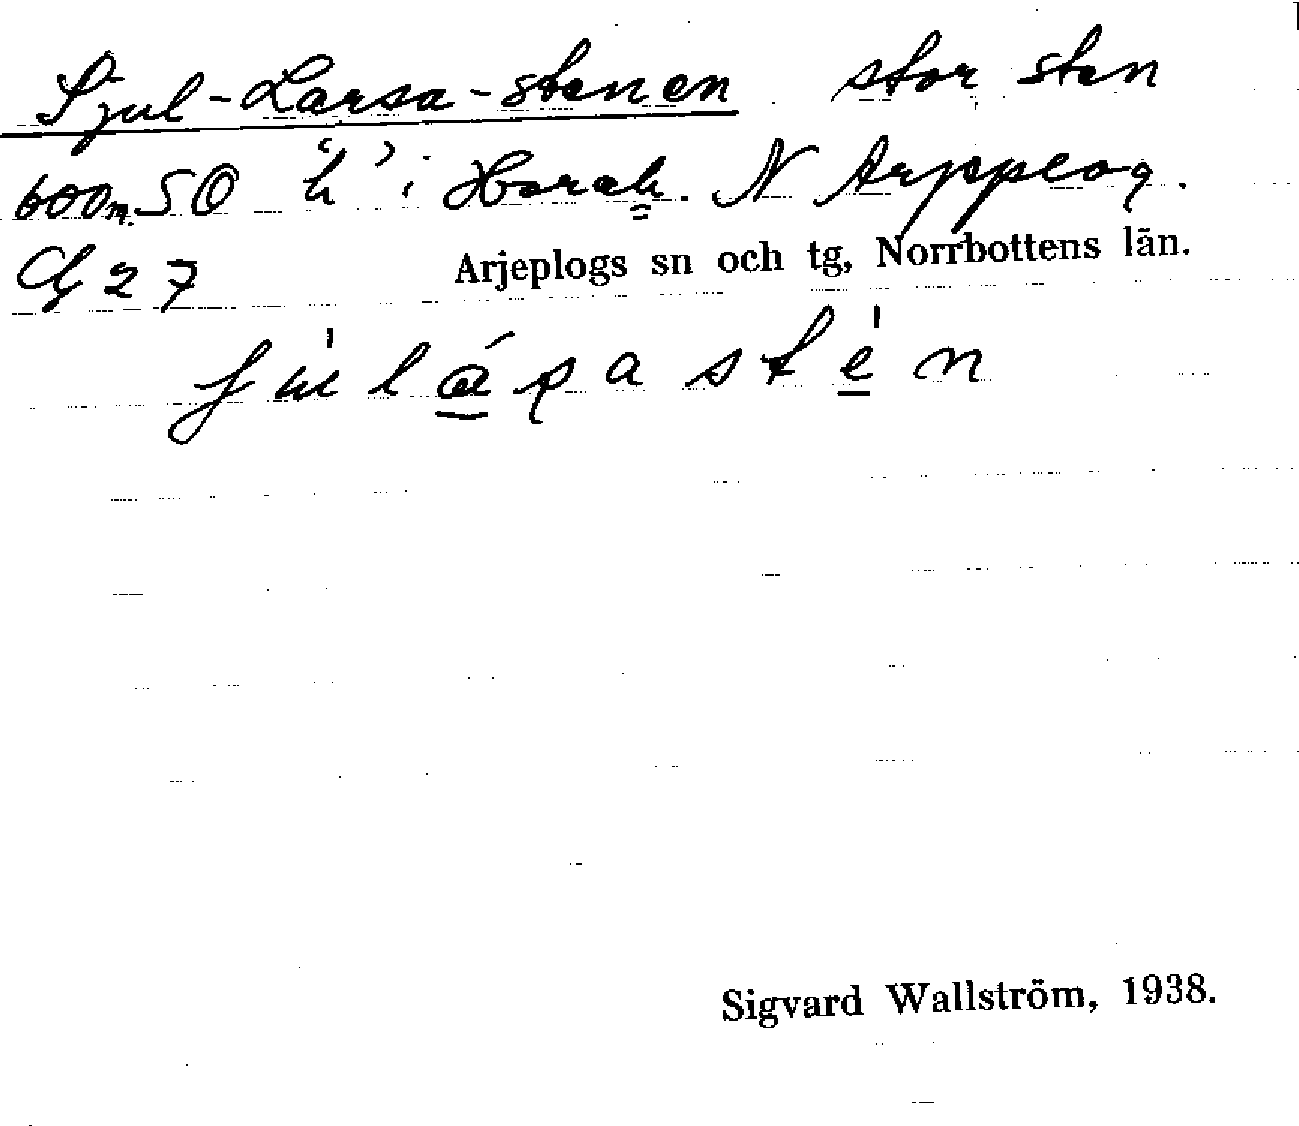 Sjul-Larsa-stenen stor sten
600m. SO "h" i Horak. N Arjeplog.
G 27
Arjeplogs sn och tg, Norrbottens län.
Sigvard Wallström, 1938.